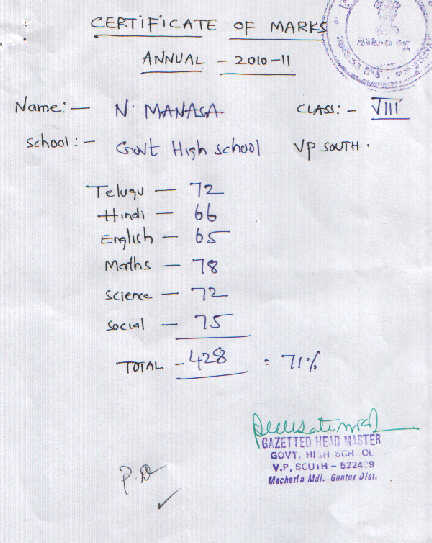 CERTIFICATE OF MARKS
ANNUAL - 2010-11
Name:- N. MANASA CLASS:- VIII
School:- Govt High school VP SOUTH.
Telugu - 72
Hindi - 66
English - 65
Maths - 78
Science - 72
Social - 75
TOTAL - 428 = 71%
GAZETTED HEAD MASTER
GOVT. HIGH SCHOOL
V.P. SOUTH -
Macherla Mdl. Guntur Dist.